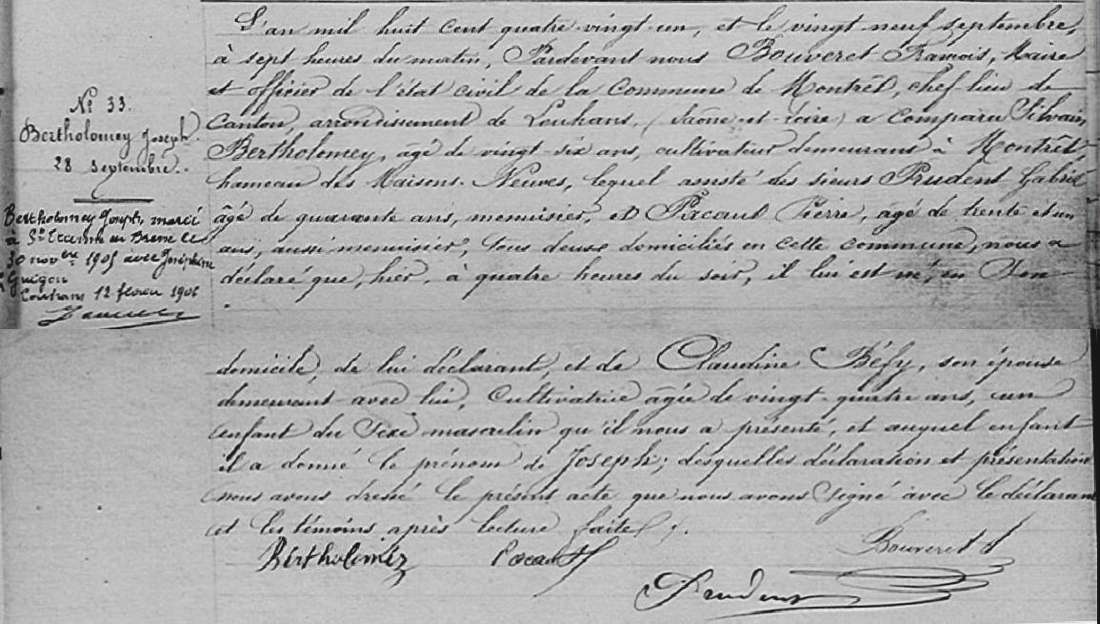 N° 33.
Bertholomey Joseph.
28 septembre.
Bertholomey Joseph, marié
à St Etienne en Bresse le
30 novbre 1905 avec Joséphine
Guigon
Louhans 12 février 1906
L'an mil huit cent quatre vingt-un, et le vingt neuf septembre,
à sept heures du matin, Pardevant nous Bouveret François, Maire
et officier de l'état civil de la Commune de Montrêt, chef-lieu de
Canton, arrondissement de Louhans, (Saône-et-Loire) a comparu Silvain
Bertholomey, âgé de vingt-six ans, cultivateur demeurant à Montrêt
hameau des Maisons-Neuves, lequel assisté des sieurs Prudent Gabriel
âgé de quarante ans, menuisier, et Pacaud Pierre, âgé de trente et un
ans, aussi menuisier, tous deux domiciliés en cette commune, nous a
déclaré que, hier, à quatre heures du soir, il lui est né, en son
domicile, de lui déclarant, et de Claudine Béfy, son épouse
demeurant avec lui, Cultivatrice âgée de vingt-quatre ans, un
enfant du sexe masculin qu'il nous a présenté, et auquel enfant
il a donné le prénom de Joseph; desquelles déclaration et présentation
nous avons dressé le présent acte que nous avons signé avec le déclarant
et les témoins après lecture faite.
Bertholomey Pacaud Bouveret
Prudent